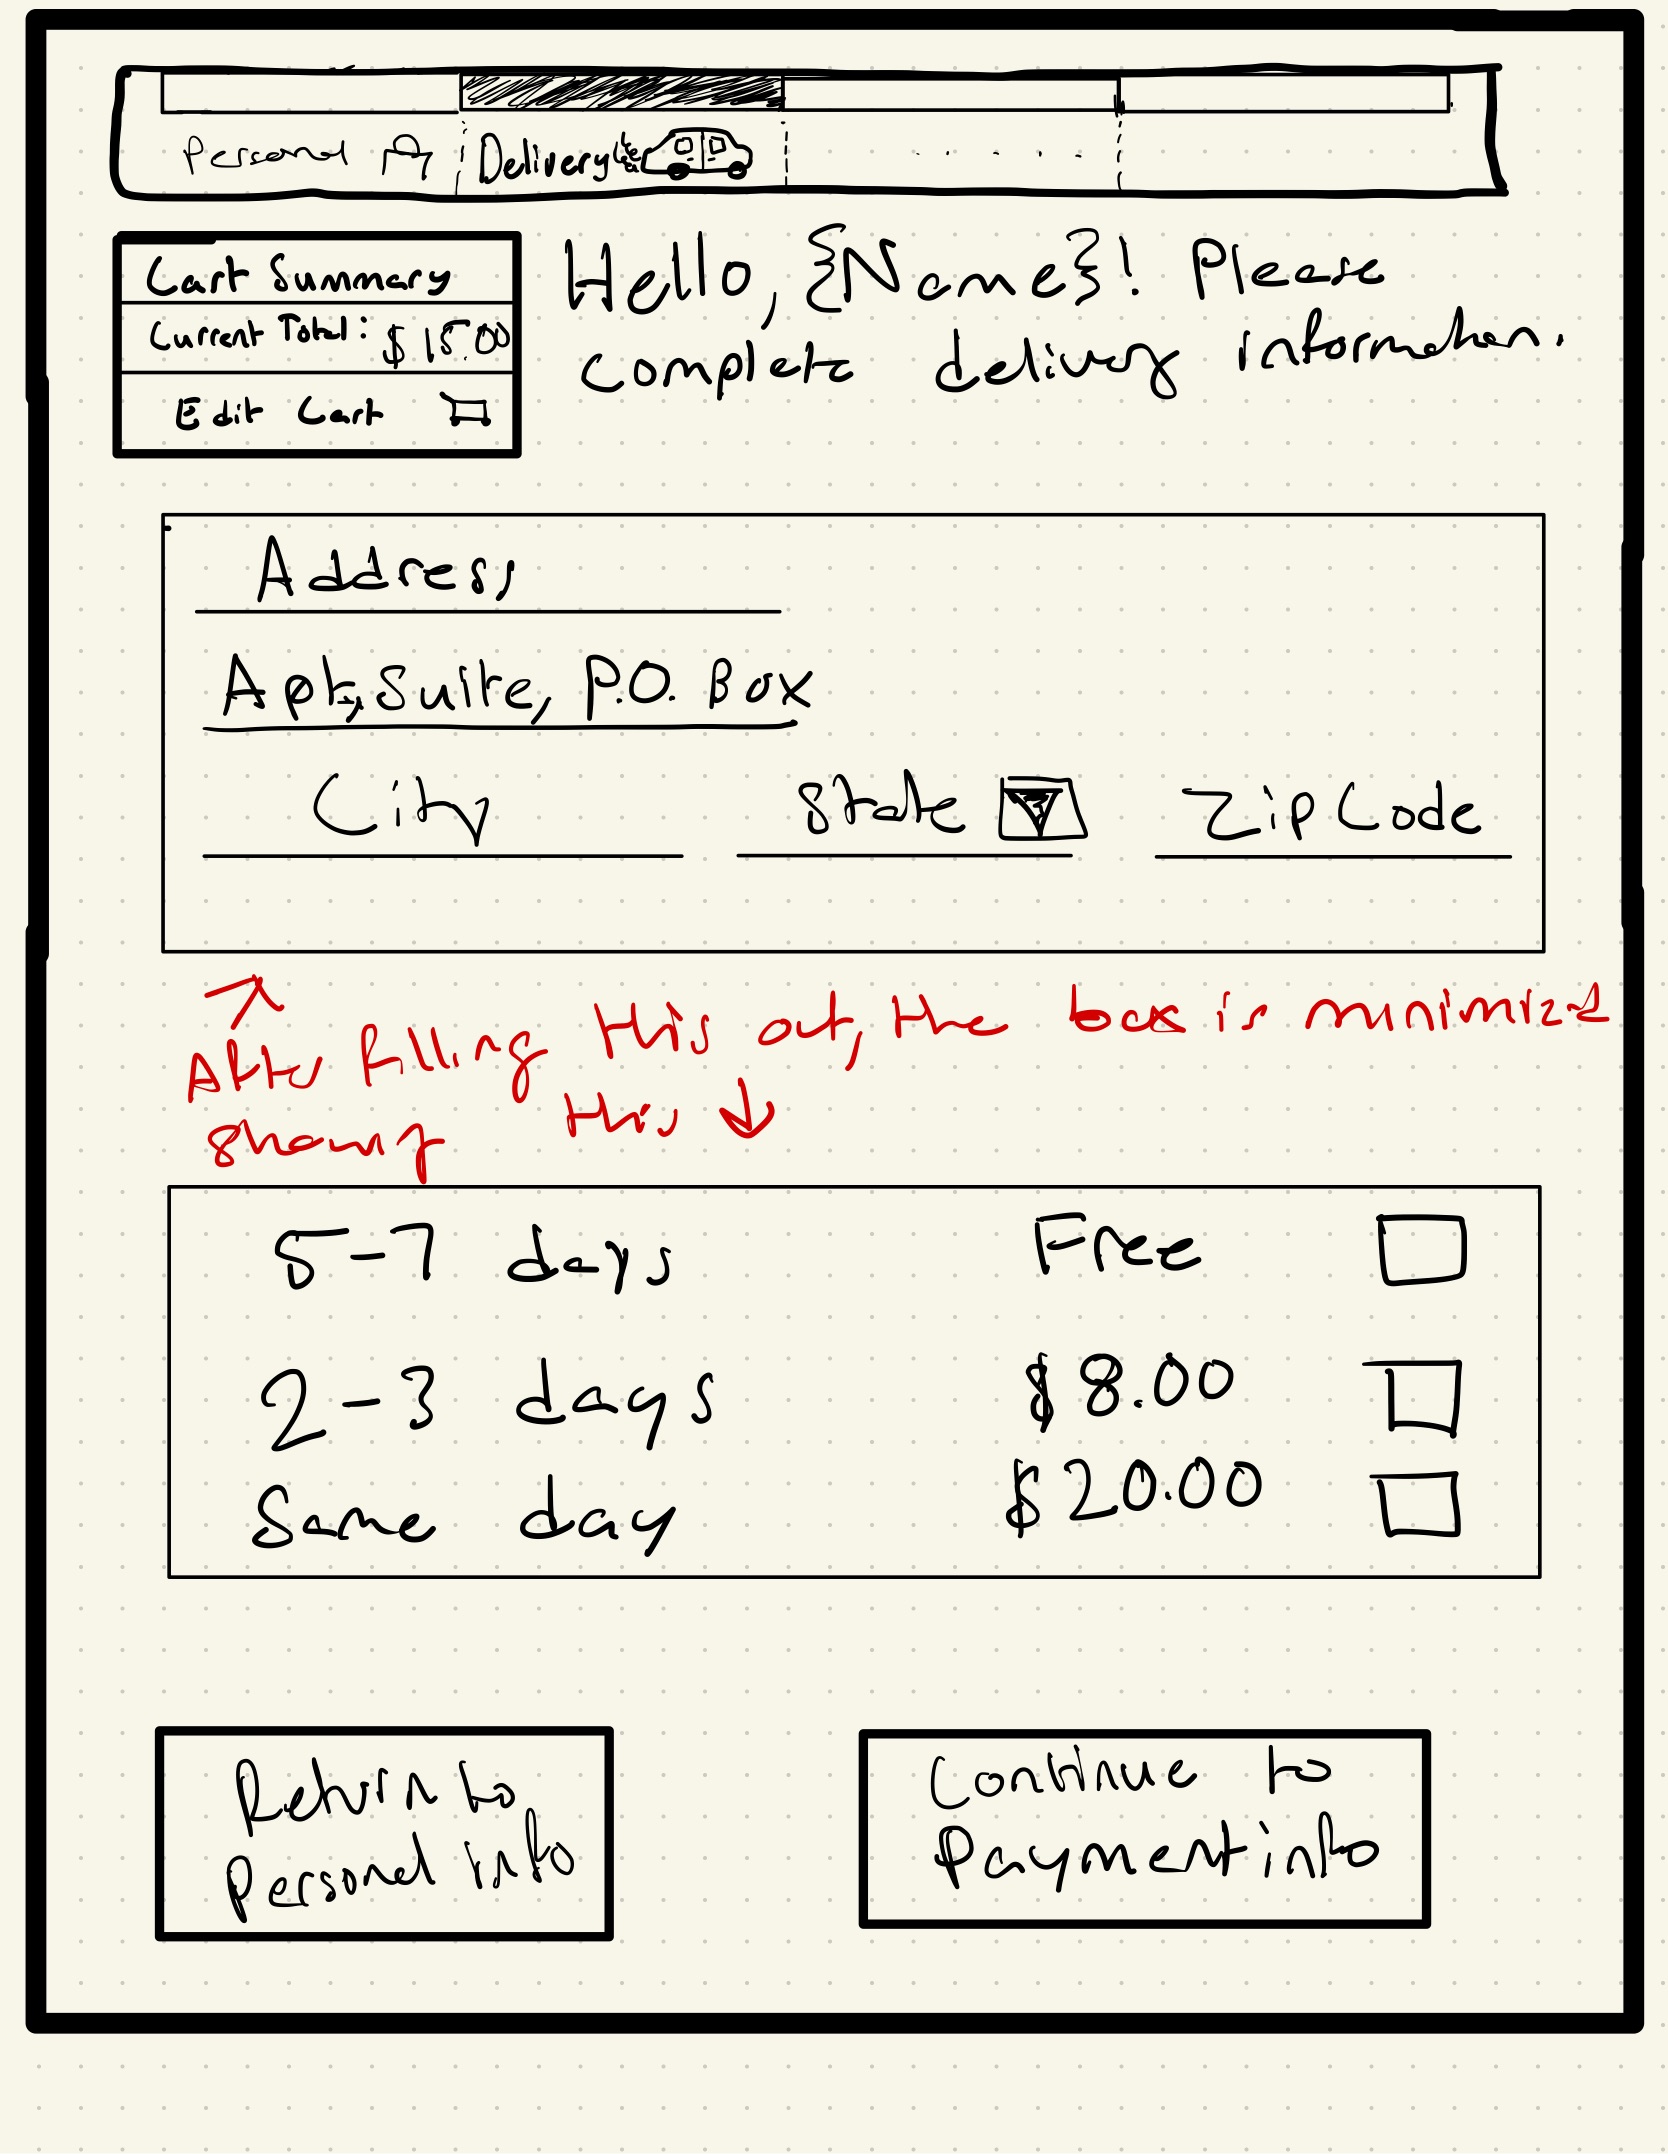 Personal Delivery
Cart Summary
Current Total: $15.00
Edit Cart
Hello, {Name}! Please
complete delivery information.
Address
Apt, Suite, P.O. Box
City State Zip Code
After filling this out, the box is minimized
showing this ↓
5-7 days Free
2-3 days $8.00
Same day $20.00
Return to
Personal info
Continue to
Payment info